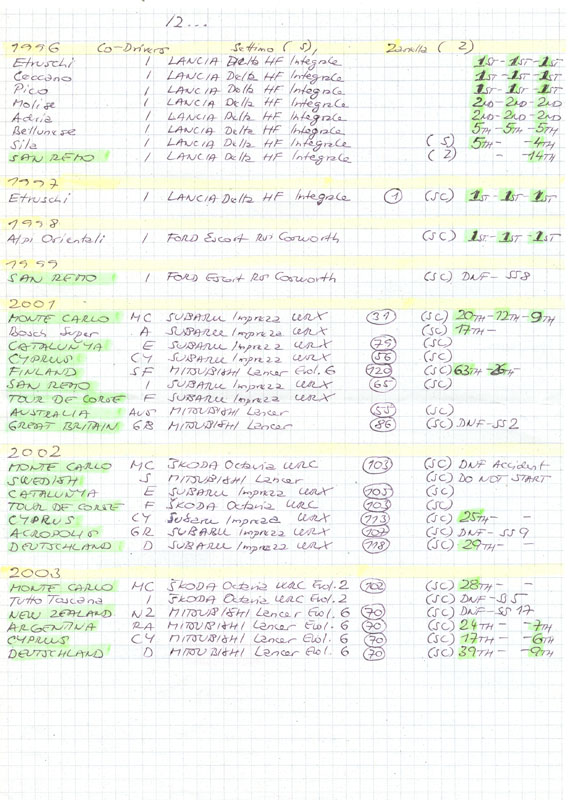 12...
1996 Co-Drivers Settimo (S), Zanella (Z)
Etruschi I LANCIA Delta HF Integrale 1ST - 1ST - 1ST
Ceccano I LANCIA Delta HF Integrale 1ST - 1ST - 1ST
Pico I LANCIA Delta HF Integrale 1ST - 1ST - 1ST
Molise I LANCIA Delta HF Integrale 2ND - 2ND - 2ND
Adria I LANCIA Delta HF Integrale 2ND - 2ND - 2ND
Bellunese I LANCIA Delta HF Integrale 5TH - 5TH - 5TH
Sila I LANCIA Delta HF Integrale (S) 5TH - - 4TH
SAN REMO I LANCIA Delta HF Integrale (Z) - - 14TH
1997
Etruschi I LANCIA Delta HF Integrale 1 (SC) 1ST - 1ST - 1ST
1998
Alpi Orientali I FORD Escort RS Cosworth (SC) 1ST - 1ST - 1ST
1999
SAN REMO I FORD Escort RS Cosworth (SC) DNF - SS8
2001
MONTE CARLO MC SUBARU Impreza WRX 31 (SC) 20TH - 12TH - 9TH
Bosch Super A SUBARU Impreza WRX (SC) 17TH -
CATALUNYA E SUBARU Impreza WRX 75 (SC)
CYPRUS CY SUBARU Impreza WRX 56 (SC)
FINLAND SF MITSUBISHI Lancer Evol. 6 120 (SC) 63TH - 26TH -
SAN REMO I SUBARU Impreza WRX 65 (SC)
TOUR DE CORSE F SUBARU Impreza WRX
AUSTRALIA AUS MITSUBISHI Lancer 55 (SC)
GREAT BRITAIN GB MITSUBISHI Lancer 86 (SC) DNF - SS2
2002
MONTE CARLO MC ŠKODA Octavia WRC 103 (SC) DNF Accident
SWEDISH S MITSUBISHI Lancer (SC) DO NOT START
CATALUNYA E SUBARU Impreza WRX 105 (SC)
TOUR DE CORSE F ŠKODA Octavia WRC 103 (SC)
CYPRUS CY Subaru Impreza WRX 113 (SC) 25TH - -
ACROPOLIS GR SUBARU Impreza WRX 107 (SC) DNF - SS9
DEUTSCHLAND D SUBARU Impreza WRX 118 (SC) 29TH - -
2003
MONTE CARLO MC ŠKODA Octavia WRC Evol. 2 102 (SC) 28TH - -
Tutto Toscana I ŠKODA Octavia WRC Evol. 2 (SC) DNF - SS5
NEW ZEALAND NZ MITSUBISHI Lancer Evol. 6 70 (SC) DNF - SS 17
ARGENTINA RA MITSUBISHI Lancer Evol. 6 70 (SC) 24TH - - 7TH
CYPRUS CY MITSUBISHI Lancer Evol. 6 70 (SC) 17TH - - 6TH
DEUTSCHLAND D MITSUBISHI Lancer Evol. 6 70 (SC) 39TH - - 9TH